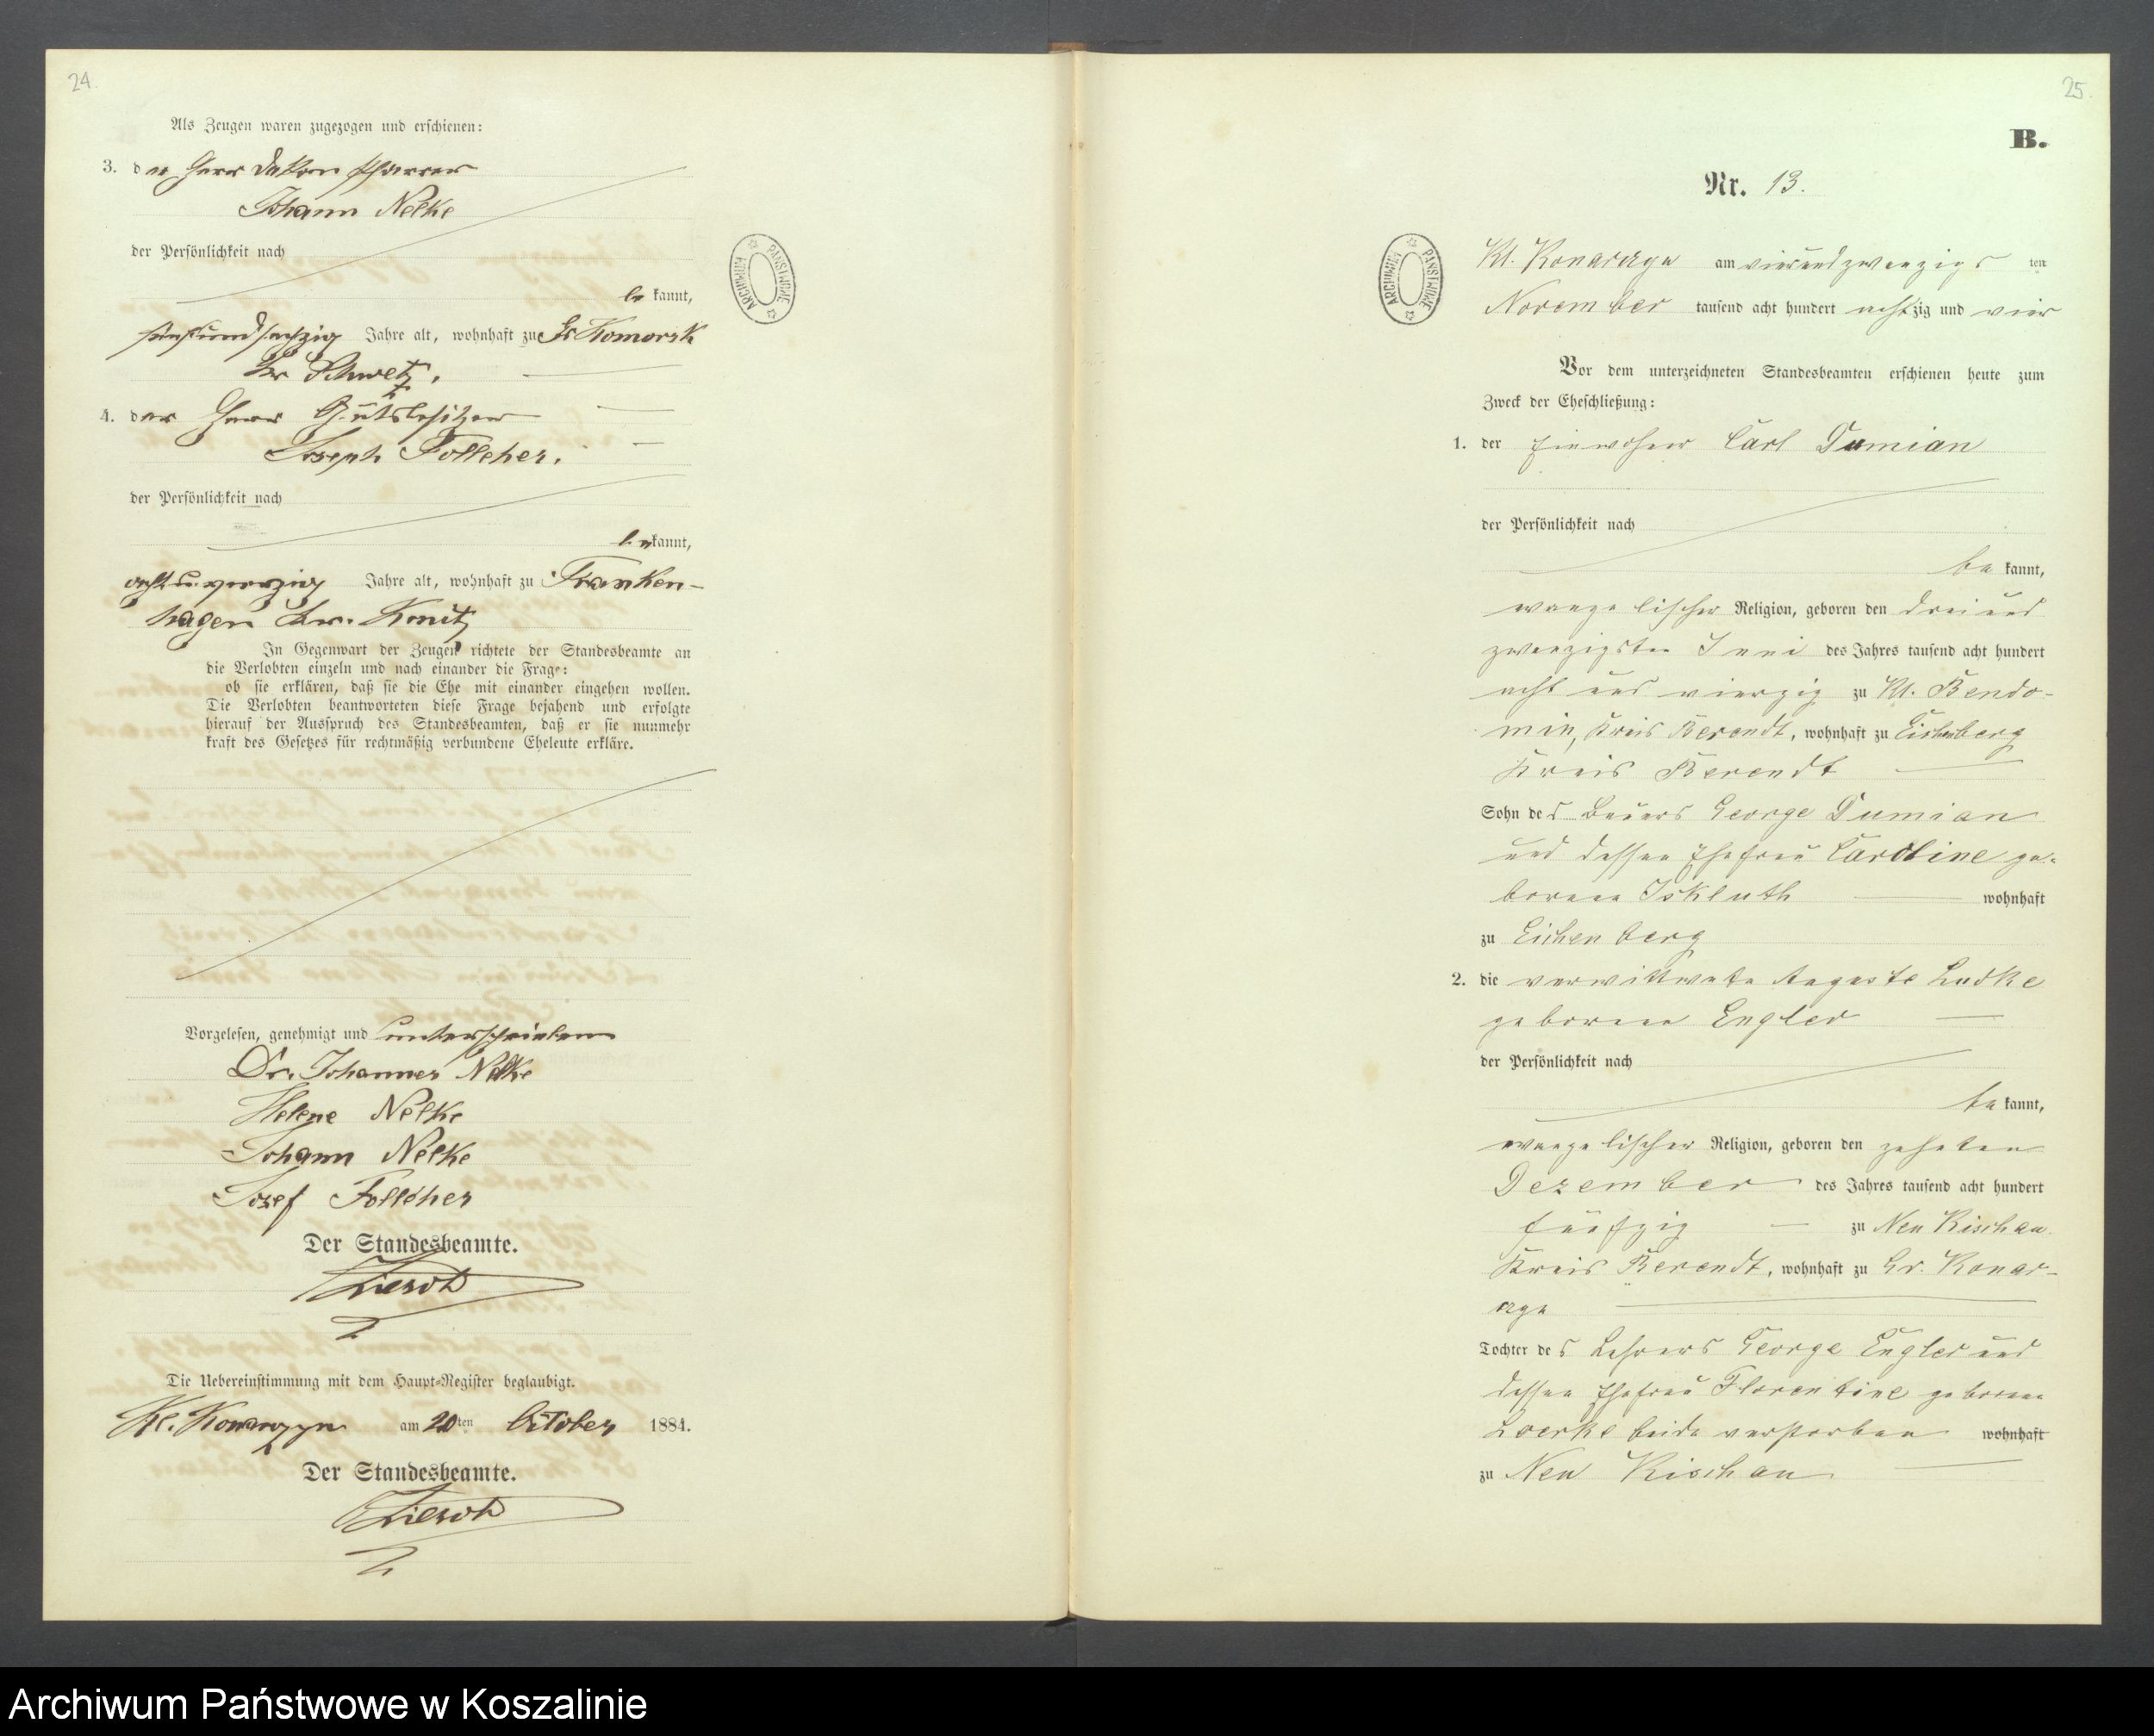 24.
Als Zeugen waren zugezogen und erschienen:
3. der Herr Dekan Pfarrer
Johann Nelke
der Persönlichkeit nach
bekannt,
fünfundsechzig Jahre alt, wohnhaft zu Gr Komorsk
Kr Schwetz.
4. der Herr Gutsbesitzer
Joseph Folleher.
der Persönlichkeit nach
bekannt,
acht u. vierzig Jahre alt, wohnhaft zu Franken-
hagen Kr. Konitz
In Gegenwart der Zeugen richtete der Standesbeamte an
die Verlobten einzeln und nach einander die Frage:
ob sie erklären, daß sie die Ehe mit einander eingehen wollen.
Die Verlobten beantworteten diese Frage bejahend und erfolgte
hierauf der Ausspruch des Standesbeamten, daß er sie nunmehr
kraft des Gesetzes für rechtmäßig verbundene Eheleute erkläre.
Vorgelesen, genehmigt und unterschrieben
Dr. Johannes Nelke
Helene Nelke
Johann Nelke
Josef Folleher
Der Standesbeamte.
Die Uebereinstimmung mit dem Haupt-Register beglaubigt.
Kl. Konarzyn am 20ten October 1884.
Der Standesbeamte.
ARCHIWUM PAŃSTWOWE
25.
B.
Nr. 13.
ARCHIWUM PAŃSTWOWE
Kl. Konarczyn am vierundzwanzigsten
November tausend acht hundert achtzig und vier
Vor dem unterzeichneten Standesbeamten erschienen heute zum
Zweck der Eheschließung:
1. der Einwohner Carl Damian
der Persönlichkeit nach
bekannt,
evangelischer Religion, geboren den drei und
zwanzigsten Juni des Jahres tausend acht hundert
acht und vierzig zu Kl. Bendo-
min, Kreis Berendt, wohnhaft zu Eichenberg
Kreis Berendt
Sohn des Bauers George Damian
und dessen Ehefrau Caroline ge-
borene Iskluth wohnhaft
zu Eichenberg
2. die verwittwete Auguste Ludke
geborene Engler
der Persönlichkeit nach
bekannt,
evangelischer Religion, geboren den zehnten
Dezember des Jahres tausend acht hundert
fünfzig zu Neu Kischau
Kreis Berendt, wohnhaft zu Gr. Konar-
czyn
Tochter des Lehrers George Engler und
dessen Ehefrau Florentine geborene
Loerke beide verstorben wohnhaft
zu Neu Kischau
Archiwum Państwowe w Koszalinie